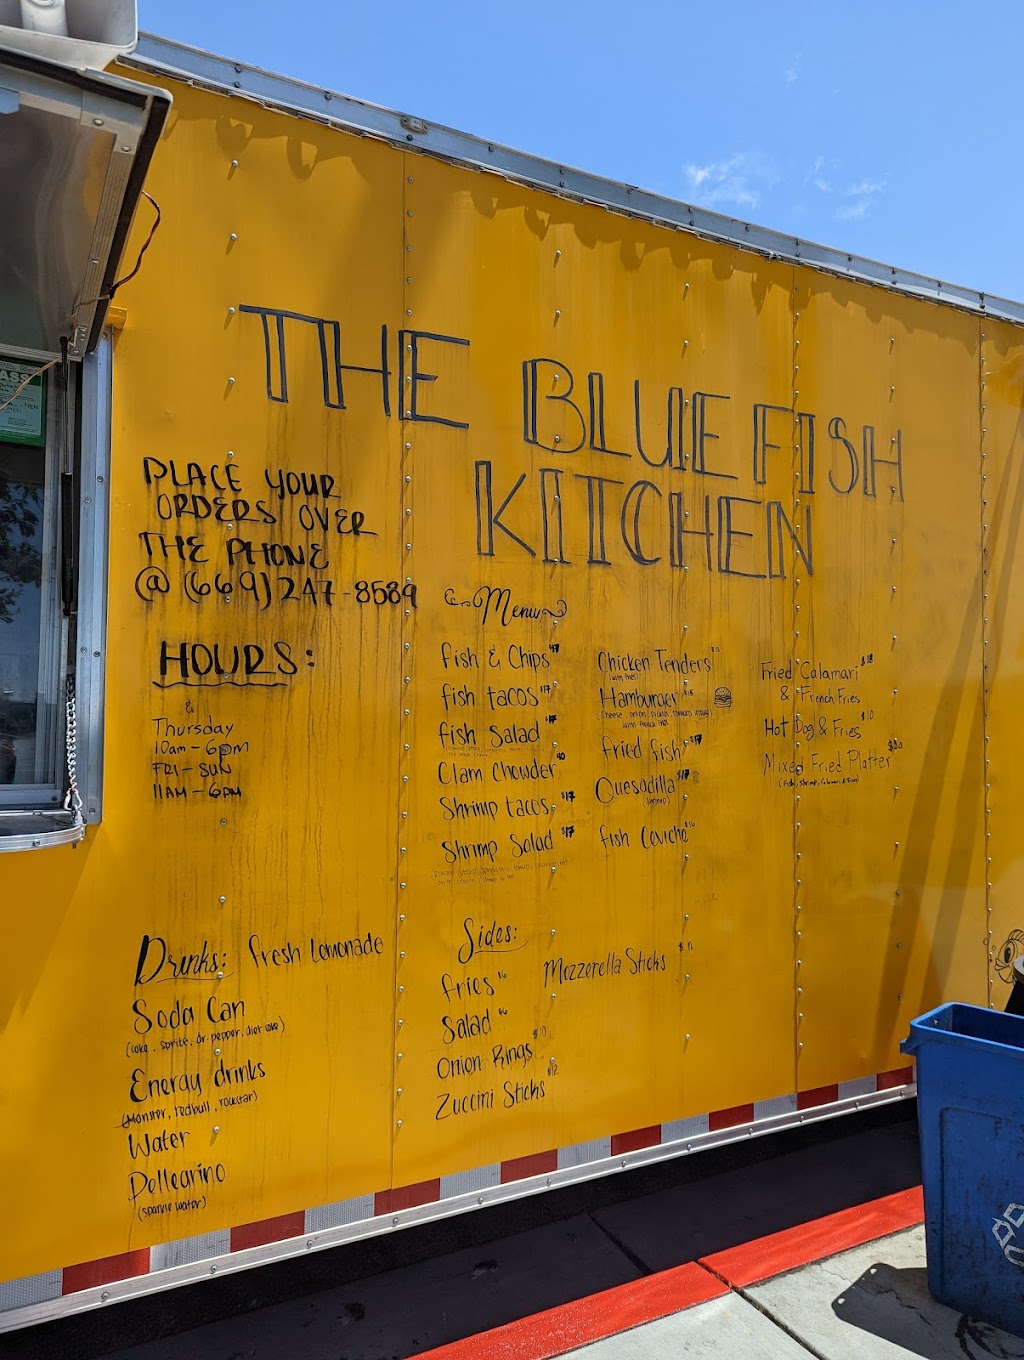 THE BLUE FISH
KITCHEN
PLACE YOUR
ORDERS OVER
THE PHONE
@ (669) 247-8589
HOURS:
&
Thursday
10am - 6pm
FRI - SUN
11AM - 6PM
Menu
Fish & Chips $17
fish tacos $17
fish Salad $17
Clam Chowder
Shrimp tacos $17
Shrimp Salad $17
Chicken Tenders $13
(with fries)
Hamburger
fried fish $17
Quesadilla $17
(shrimp)
fish Cevicho $16
Fried Calamari $18
& French Fries
Hot Dog & Fries $10
Mixed Fried Platter
(Fish, Shrimp, Calamari & Fries)
Drinks: fresh Lemonade
Soda Can
(coke, sprite, dr. pepper, diet coke)
Energy drinks
(Monster, redbull, rockstar)
Water
Pellegrino
Sides:
fries $6
Salad $6
Onion Rings $10
Zuccini Sticks $12
Mozzerella Sticks